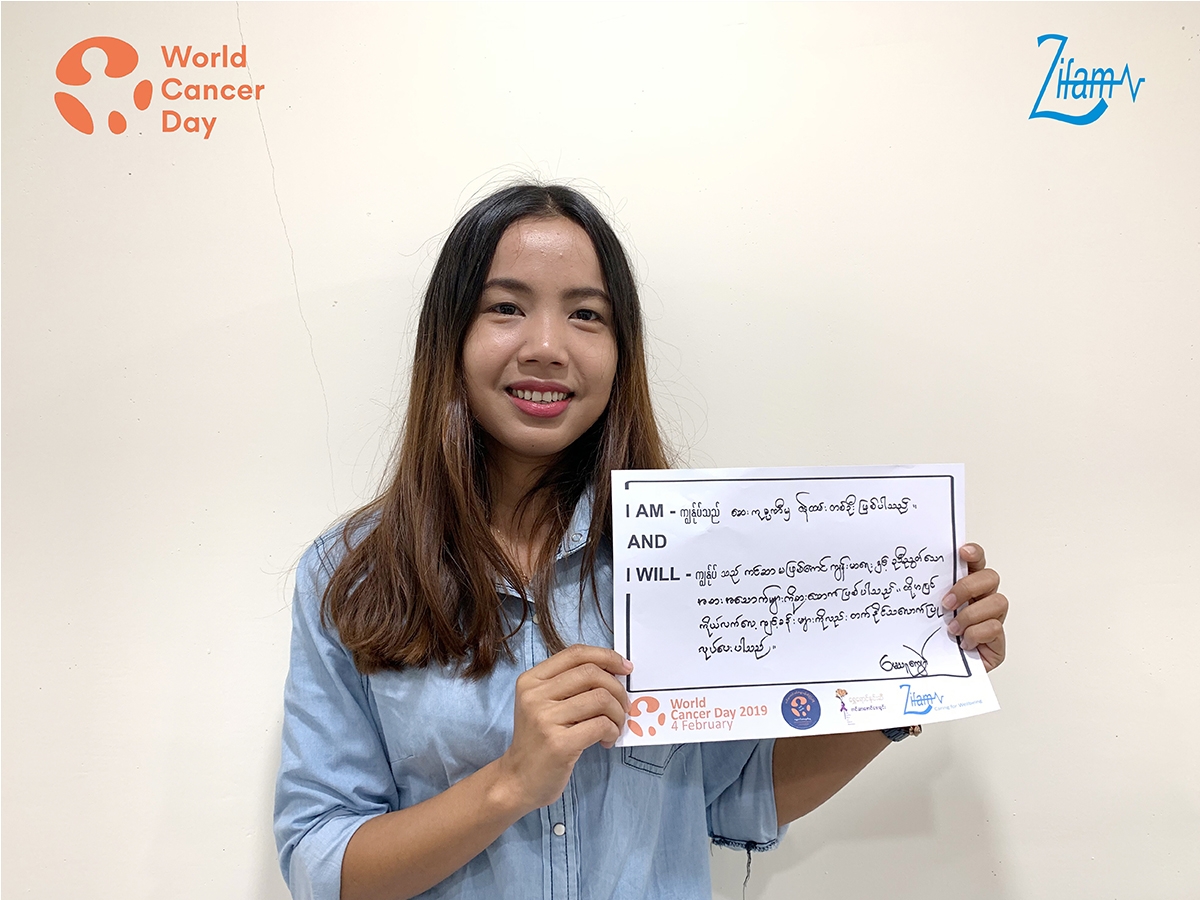 World
Cancer
Day
Zifam
I AM - ကျွန်ုပ်သည် ဆေးကုမ္ပဏီမှ ဝန်ထမ်းတစ်ဦး ဖြစ်ပါသည်။
AND
I WILL - ကျွန်ုပ်သည် ကင်ဆာမဖြစ်အောင် ကျန်းမာရေးနှင့် ညီညွတ်သော
အစားအသောက်များကို စားသောက် ဖြစ်ပါသည်။ ထို့အပြင်
ကိုယ်လက်လေ့ကျင့်ခန်းများကိုလည်း တက်နိုင်သလောက် ပြု
လုပ်ပေးပါသည်။
World
Cancer Day 2019
4 February
Zifam
Caring for Wellbeing